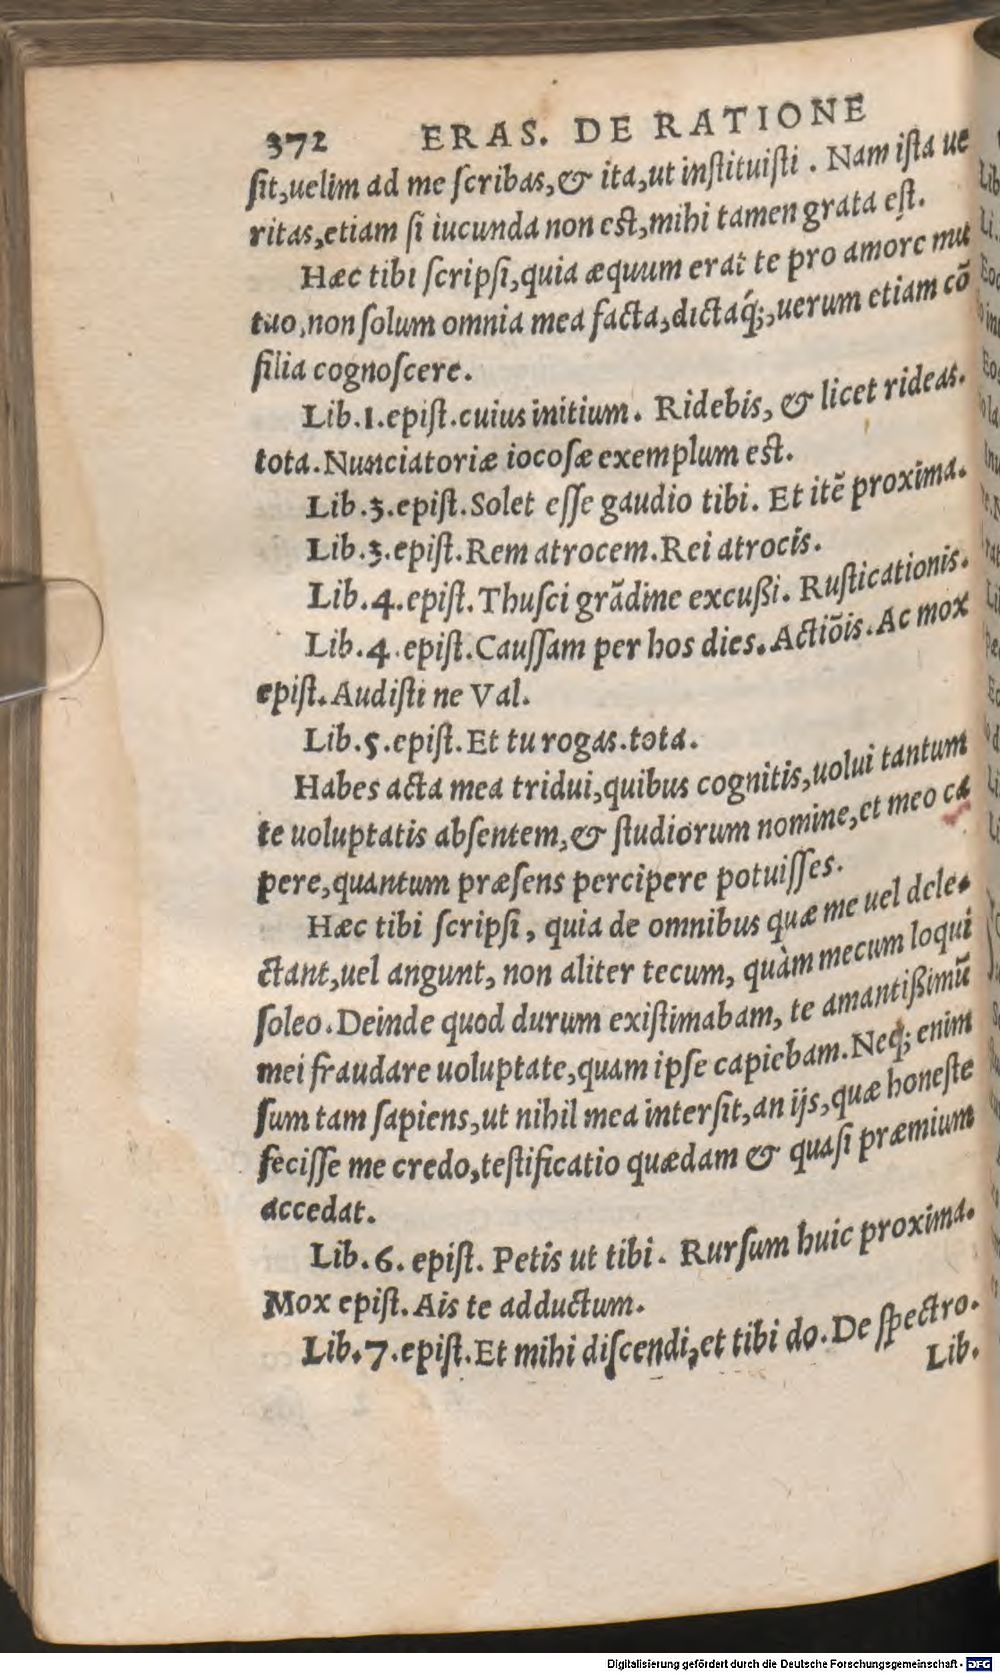 372 ERAS. DE RATIONE
ſit,uelim ad me ſcribas,& ita,ut inſtituiſti. Nam iſta ue
ritas,etiam ſi iucunda non eſt,mihi tamen grata eſt.
Hæc tibi ſcripſi,quia æquum erat te pro amore mut
tuo,non ſolum omnia mea facta,dictaq́;,uerum etiam cõ
ſilia cognoſcere.
Lib.1.epiſt.cuius initium. Ridebis, & licet rideas.
tota.Nunciatoriæ iocoſæ exemplum eſt.
Lib.3.epiſt.Solet eſſe gaudio tibi. Et itẽ proxima.
Lib.3.epiſt.Rem atrocem.Rei atrocis.
Lib.4.epiſt.Thuſci grãdine excußi. Ruſticationis.
Lib.4.epiſt.Cauſſam per hos dies.Actiõis.Ac mox
epiſt.Audiſti ne Val.
Lib.5.epiſt.Et tu rogas.tota.
Habes acta mea tridui,quibus cognitis,uolui tantum
te uoluptatis abſentem,& ſtudiorum nomine,et meo ca
pere,quantum præſens percipere potuiſſes.
Hæc tibi ſcripſi, quia de omnibus quæ me uel dele-
ctant,uel angunt, non aliter tecum, quàm mecum loqui
ſoleo.Deinde quod durum exiſtimabam, te amantißimũ
mei fraudare uoluptate,quam ipſe capiebam.Neq; enim
ſum tam ſapiens,ut nihil mea interſit,an ijs,quæ honeſte
feciſſe me credo,teſtificatio quædam & quaſi præmium
accedat.
Lib.6. epiſt. Petis ut tibi. Rurſum huic proxima.
Mox epiſt.Ais te adductum.
Lib.7.epiſt.Et mihi diſcendi,et tibi do.De ſpectro.
Lib.
Digitalisierung gefördert durch die Deutsche Forschungsgemeinschaft - DFG